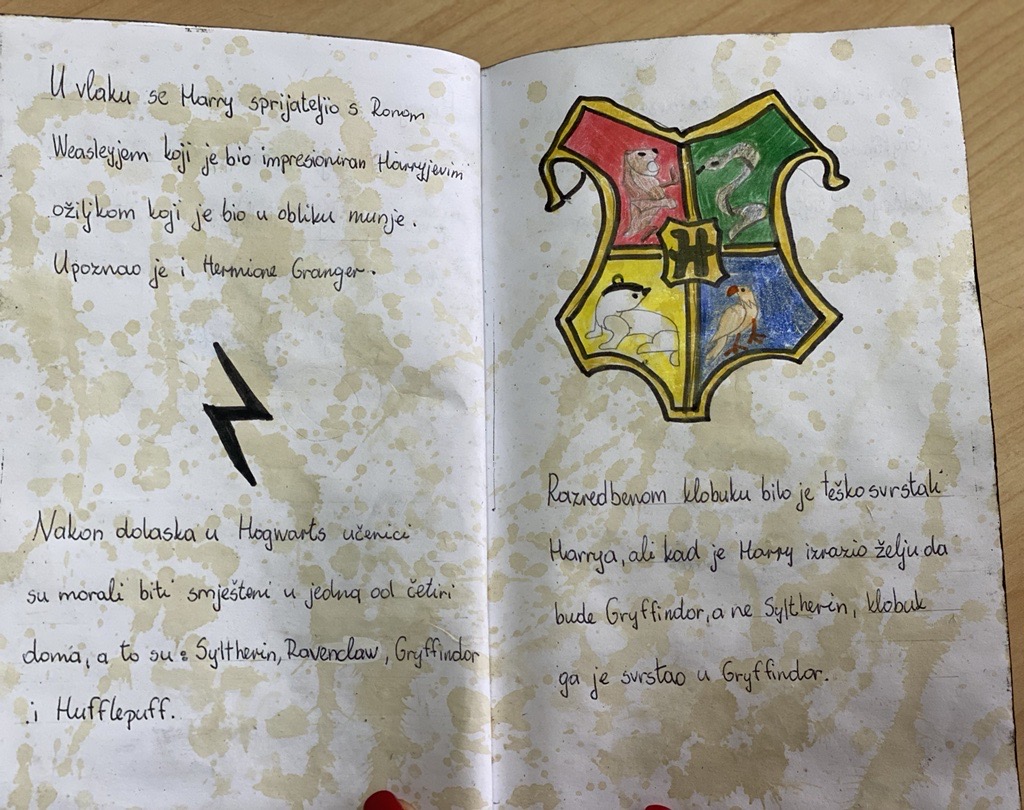 U vlaku se Harry sprijateljio s Ronom
Weasleyjem koji je bio impresioniran Harryjevim
ožiljkom koji je bio u obliku munje.
Upoznao je i Hermione Granger.
Nakon dolaska u Hogwarts učenici
su morali biti smješteni u jedna od četiri
doma, a to su: Syltherin, Ravenclaw, Gryffindor
i Hufflepuff.
H
Razredbenom klobuku bilo je teško svrstati
Harrya, ali kad je Harry izrazio želju da
bude Gryffindor, a ne Syltherin, klobuk
ga je svrstao u Gryffindor.